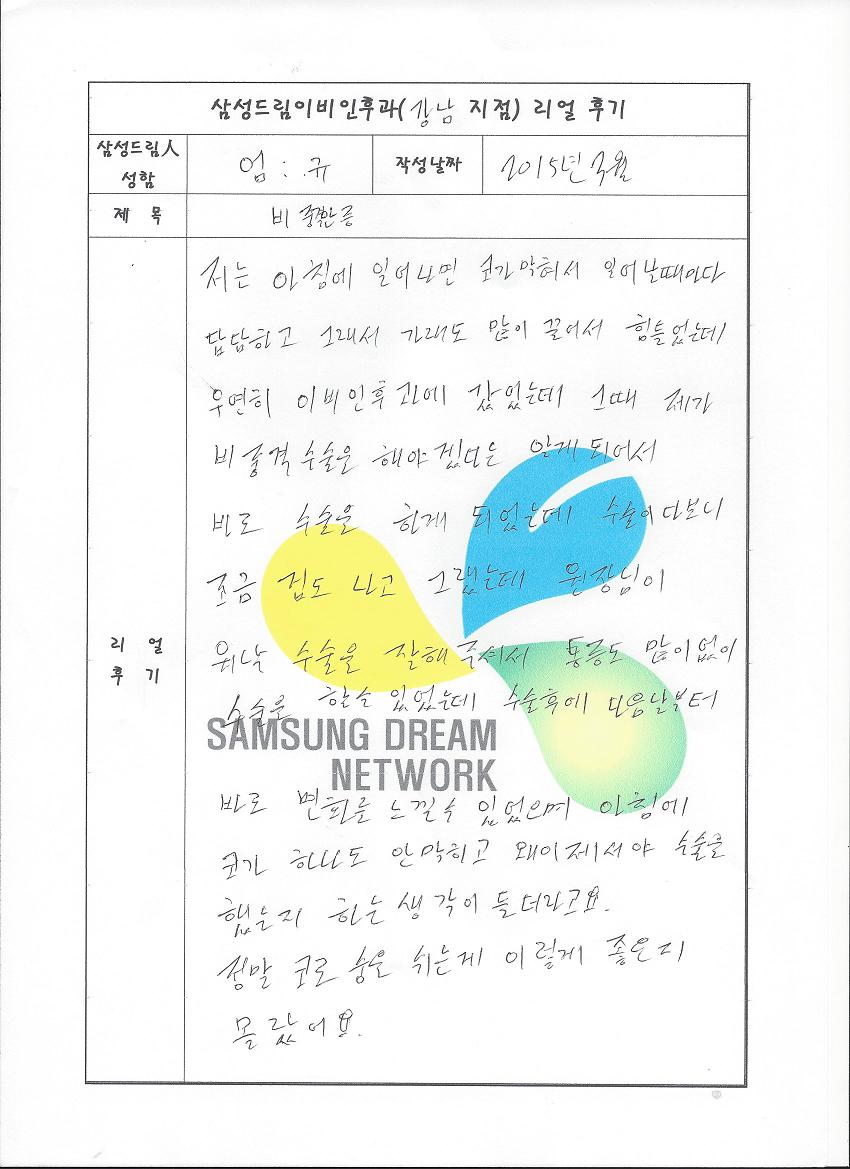 삼성드림이비인후과(강남 지점) 리얼 후기
삼성드림人 성함
엄 규
작성날짜
2015년 3월
제 목
비 중환증
리 얼 후 기
저는 아침에 일어나면 코가막혀서 일어날때마다
답답하고 그래서 가래도 많이 끓어서 힘들었는데
우연히 이비인후과에 갔었는데 그때 제가
비중격수술을 해야겠다는 알게되어서
바로 수술을 한게 되었는데 수술이다보니
조금 겁도 나고 그랬는데 원장님이
워낙 수술을 잘해주셔서 통증도 많이없이
수술을 할수 있었는데 수술후에 다음날부터
SAMSUNG DREAM
NETWORK
바로 변화를 느낄수 있었으며 아침에
코가 하나도 안막히고 왜이제서야 수술을
했는지 하는 생각이 들더라고요.
정말 코로 숨을 쉬는게 이렇게 좋은지
몰랐어요.